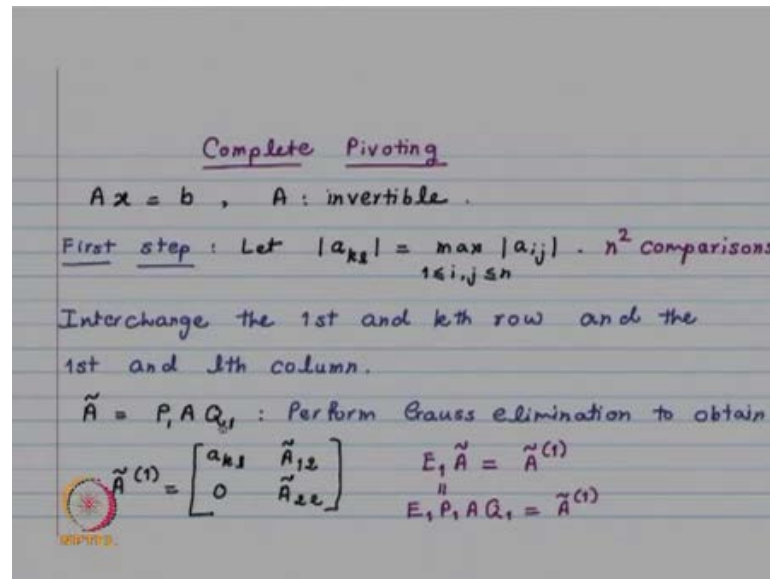 Complete Pivoting
Ax = b , A : invertible .
First step : Let |a_{kl}| = max_{1≤i,j≤n} |a_{ij}| . n² comparisons
Interchange the 1st and kth row and the
1st and lth column.
Ã = P₁ A Q₁ : Perform Gauss elimination to obtain
Ã^{(1)} = [ a_{kl} Ã_{12} ; 0 Ã_{22} ] E₁ Ã = Ã^{(1)}
"
E₁ P₁ A Q₁ = Ã^{(1)}
NPTEL